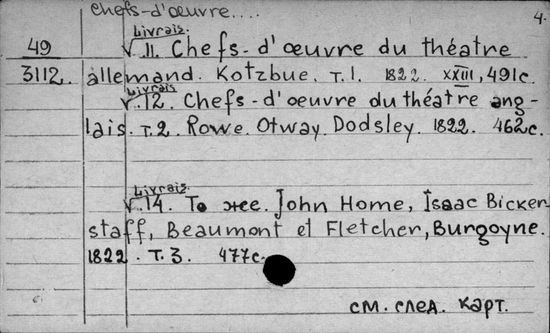 Chefs-d'œuvre.... 4.
Livrais.
49 V. 11. Chefs-d'œuvre du théatre
3112. allemand. Kotzbue. T.1. 1822. XXIII, 491c.
Livrais.
V. 12. Chefs-d'oeuvre du théatre ang-
lais. T.2. Rowe. Otway. Dodsley. 1822. 462c.
Livrais.
V. 14. То же. John Home, Isaac Bicker
staff, Beaumont et Fletcher, Burgoyne.
1822. T.3. 477c.
см. след. карт.